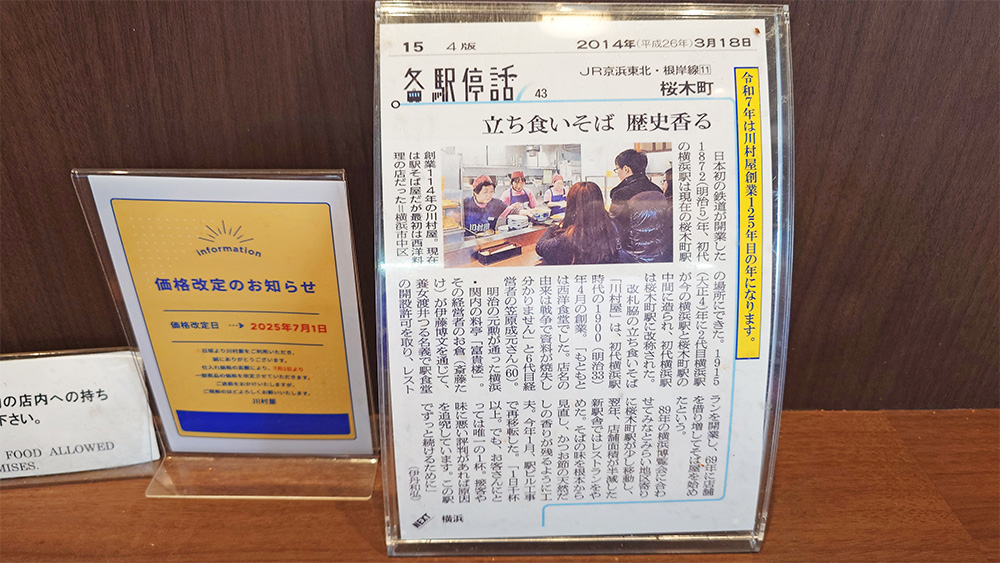 の店内への持ち
下さい。
FOOD ALLOWED
MISES.
information
価格改定のお知らせ
価格改定日 ---> 2025年7月1日
日頃より川村屋をご利用いただき、
誠にありがとうございます。
仕入れ価格の高騰により、7月1日より
一部商品の価格を改定させていただきます。
ご迷惑をおかけいたしますが、
ご理解のほどよろしくお願いいたします。
川村屋
15 4版 2014年(平成26年)3月18日
各駅停話 43
JR京浜東北・根岸線⑪
桜木町
令和7年は川村屋創業125年目の年になります。
立ち食いそば 歴史香る
創業114年の川村屋。現在
は駅そば屋だが最初は西洋料
理の店だった＝横浜市中区
日本初の鉄道が開業した
1872(明治5)年、初代
の横浜駅は現在の桜木町駅
の場所にできた。1915
(大正4)年に2代目横浜駅
が今の横浜駅と桜木町駅の
中間に造られ、初代横浜駅
は桜木町駅に改称された。
改札脇の立ち食いそば
「川村屋」は、初代横浜駅
時代の1900(明治33)
年4月の創業。「もともと
は西洋食堂でした。店名の
由来は戦争で資料が焼失し
分かりません」と6代目経
営者の笠原成元さん(60)。
明治の元勲が通った横浜
・関内の料亭「富貴楼」。
その経営者のお倉(斎藤た
け)が伊藤博文を通じて、
養女渡井つる名義で駅食堂
の開設許可を取り、レスト
ランを開業し、69年に店舗
を借り増してそば屋を始め
たという。
89年の横浜博覧会に合わ
せてみなとみらい地区寄り
に桜木町駅が少し移動し、
翌年、店舗面積が半減した
新駅舎ではレストランをや
めた。そばの味を根本から
見直し、かつお節の天然だ
しの香りが残るように工
夫。今年1月、駅ビル工事
で再移転した。「1日千杯
以上。でも、お客さんにと
っては唯一の1杯。接客や
味に悪い評判があれば原因
を追究しています。この駅
でずっと続けるために」
(伊丹和弘)
NEXT 横浜